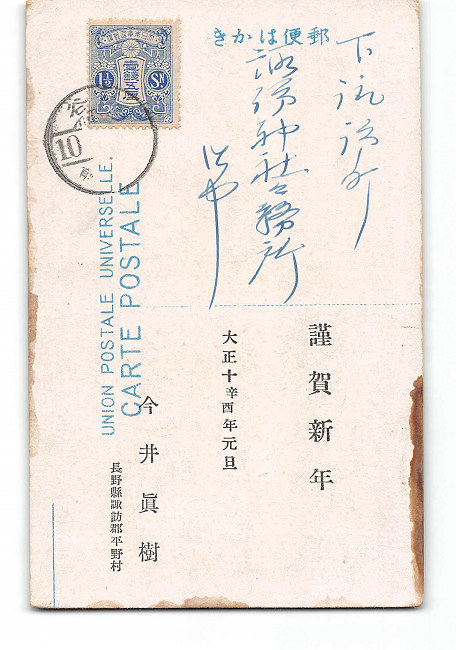 郵便はかき
下諏訪町
諏訪神社々務所
御中
壹錢五厘
1½ Sn
10
UNION POSTALE UNIVERSELLE.
CARTE POSTALE
謹賀新年
大正十辛酉年元旦
今井眞樹
長野縣諏訪郡平野村